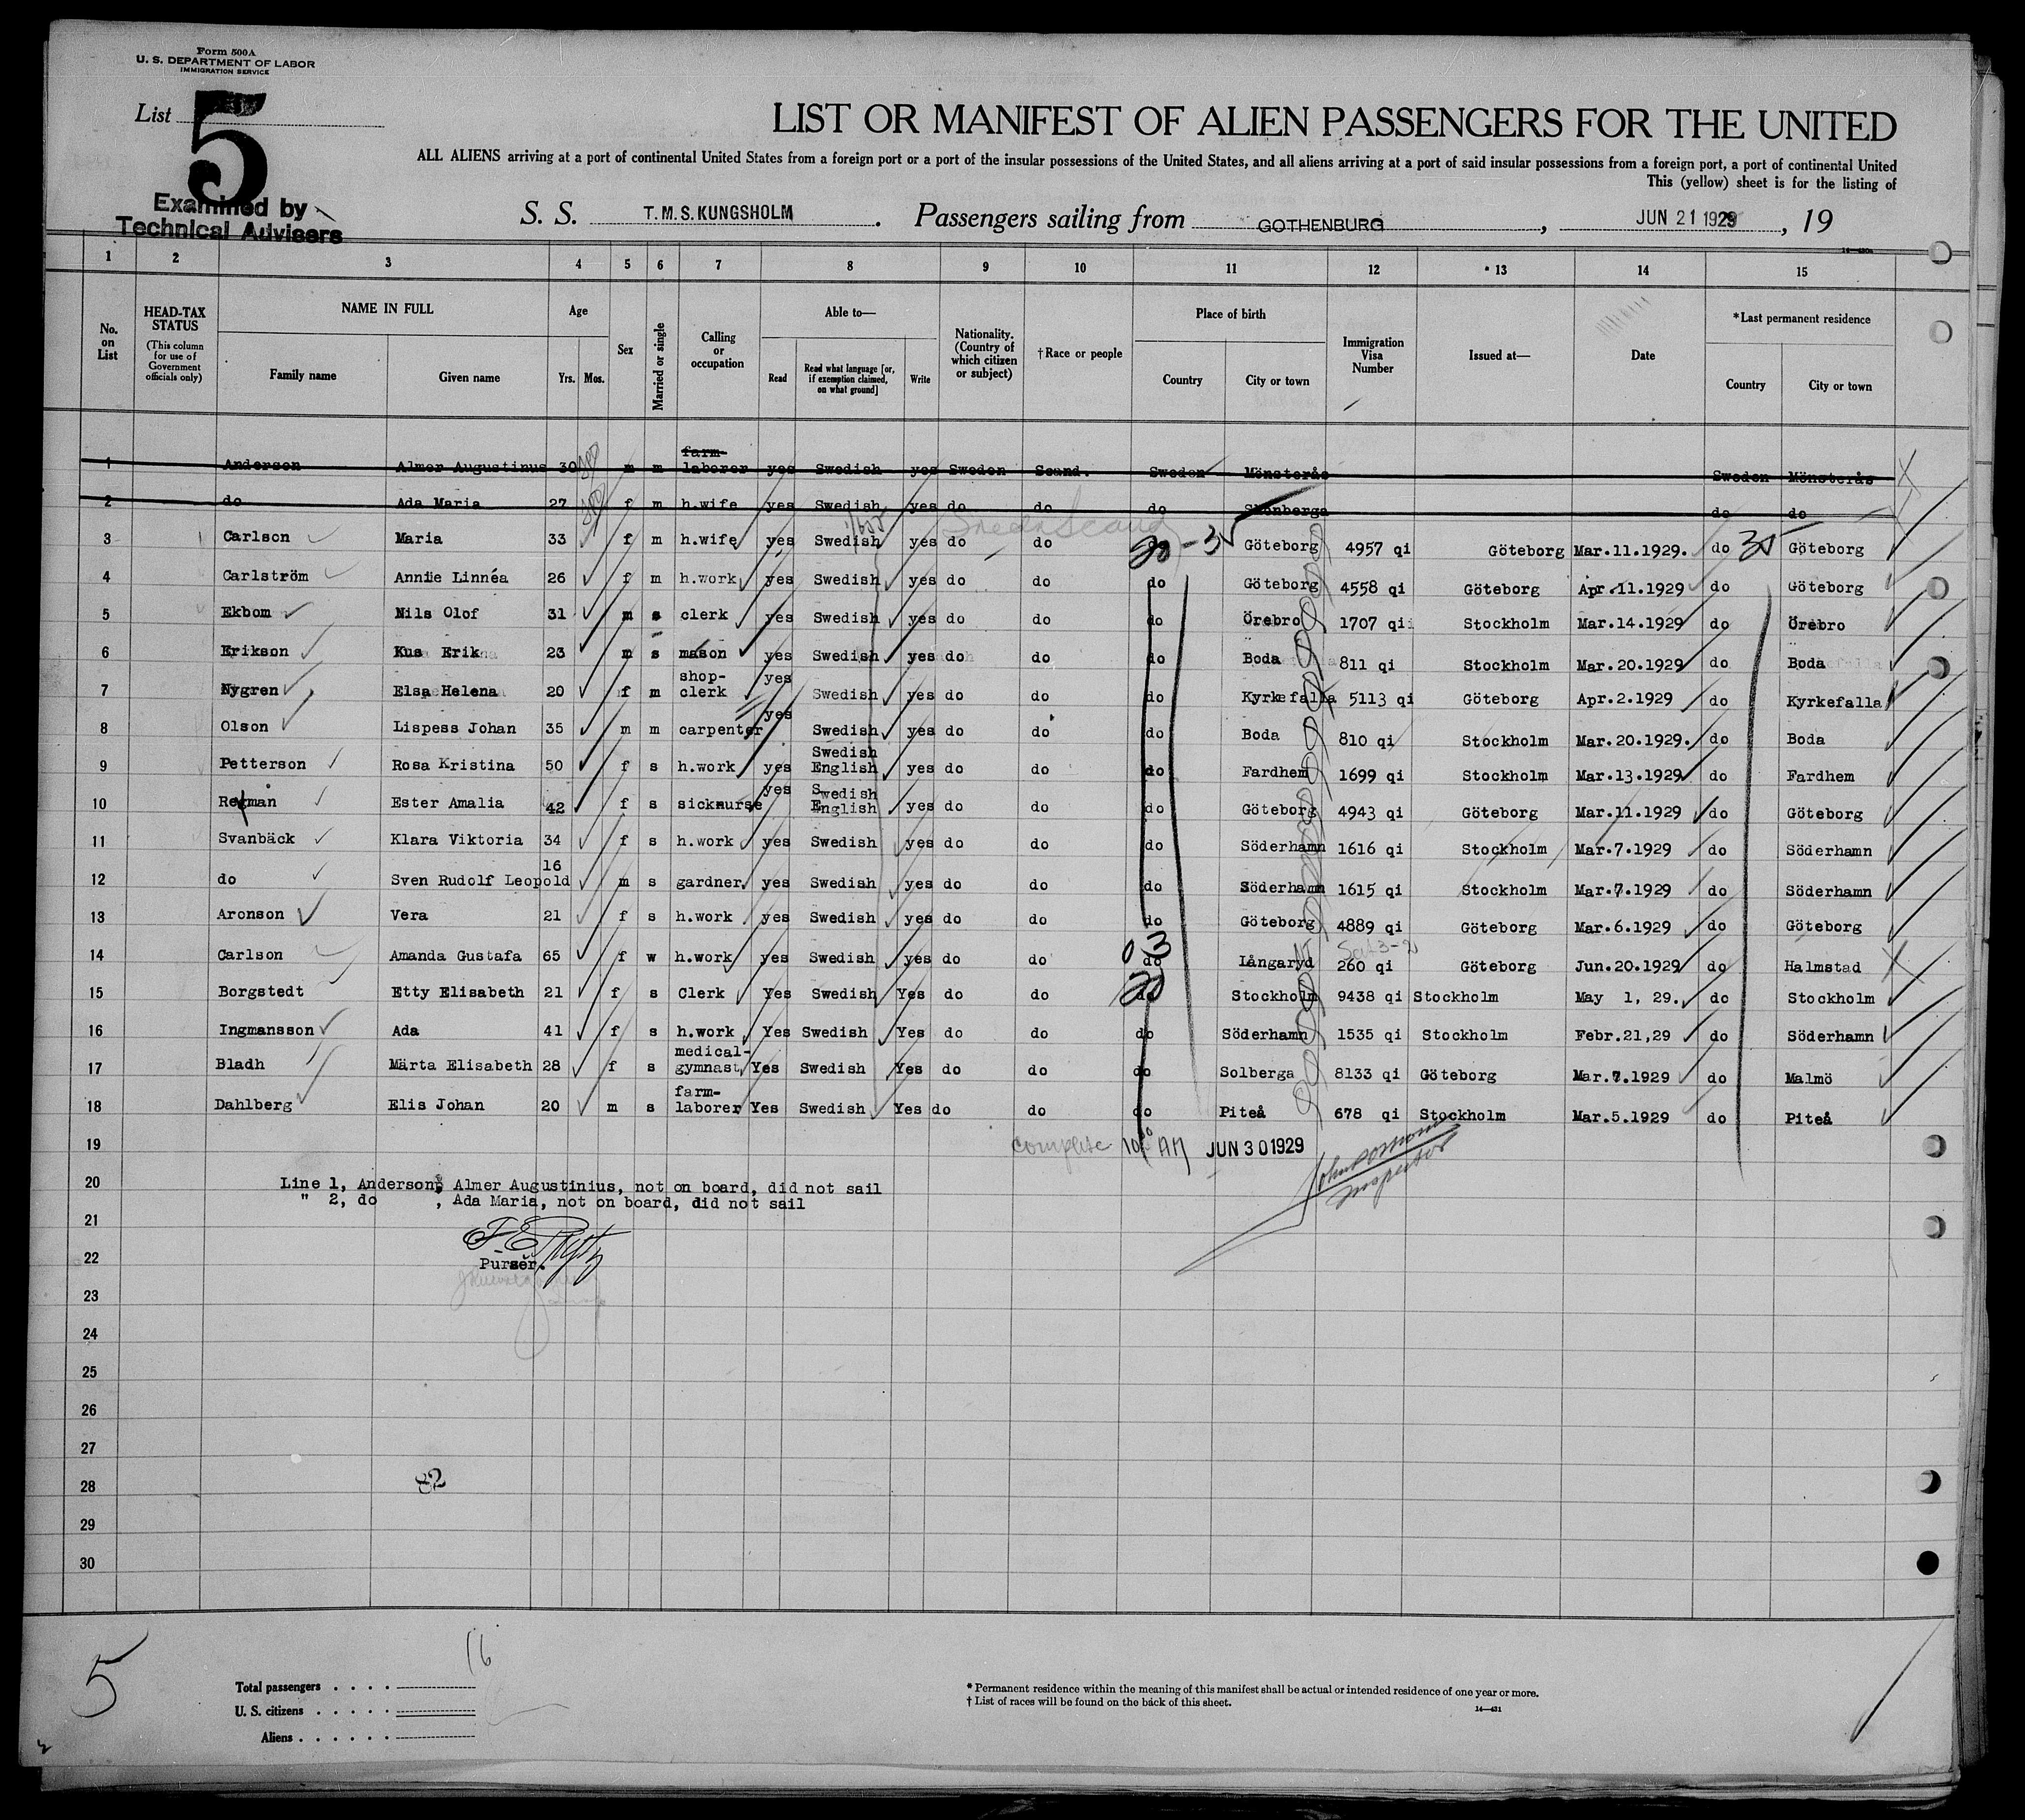 Form 500A
U. S. DEPARTMENT OF LABOR
IMMIGRATION SERVICE
List 5
LIST OR MANIFEST OF ALIEN PASSENGERS FOR THE UNITED
ALL ALIENS arriving at a port of continental United States from a foreign port or a port of the insular possessions of the United States, and all aliens arriving at a port of said insular possessions from a foreign port, a port of continental United
This (yellow) sheet is for the listing of
Examined by
Technical Advisers
S. S. T.M.S. KUNGSHOLM. Passengers sailing from GOTHENBURG, JUN 21 1929, 19
1 2 3 4 5 6 7 8 9 10 11 12 * 13 14 15
No. on List
HEAD-TAX STATUS (This column for use of Government officials only)
NAME IN FULL Family name Given name
Age Yrs. Mos.
Sex
Married or single
Calling or occupation
Able to— Read Read what language [or, if exemption claimed, on what ground] Write
Nationality. (Country of which citizen or subject)
†Race or people
Place of birth Country City or town
Immigration Visa Number
Issued at—
Date
*Last permanent residence Country City or town
1 Anderson Almer Augustinus 30 m m farm-laborer yes Swedish yes Sweden Scand. Sweden Mönsterås Sweden Mönsterås
2 do Ada Maria 27 f m h.wife yes Swedish yes do do do do do
3 Carlson Maria 33 f m h.wife yes Swedish yes do do do Göteborg 4957 qi Göteborg Mar.11.1929. do Göteborg
4 Carlström Annie Linnéa 26 f m h.work yes Swedish yes do do do Göteborg 4558 qi Göteborg Apr.11.1929 do Göteborg
5 Ekbom Nils Olof 31 m s clerk yes Swedish yes do do do Örebro 1707 qi Stockholm Mar.14.1929 do Örebro
6 Erikson Kus Erik 23 m s mason yes Swedish yes do do do Boda 811 qi Stockholm Mar.20.1929 do Boda
7 Nygren Elsa Helena 20 f m shop-clerk yes Swedish yes do do do Kyrkefalla 5113 qi Göteborg Apr.2.1929 do Kyrkefalla
8 Olson Lispess Johan 35 m m carpenter yes Swedish yes do do do Boda 810 qi Stockholm Mar.20.1929. do Boda
9 Petterson Rosa Kristina 50 f s h.work yes Swedish English yes do do do Fardhem 1699 qi Stockholm Mar.13.1929 do Fardhem
10 Ester Amalia 42 f s sicknurse yes Swedish English yes do do do Göteborg 4943 qi Göteborg Mar.11.1929 do Göteborg
11 Svanbäck Klara Viktoria 34 f s h.work yes Swedish yes do do do Söderhamn 1616 qi Stockholm Mar.7.1929 do Söderhamn
12 do Sven Rudolf Leopold 16 m s gardner yes Swedish yes do do do Söderhamn 1615 qi Stockholm Mar.7.1929 do Söderhamn
13 Aronson Vera 21 f s h.work yes Swedish yes do do do Göteborg 4889 qi Göteborg Mar.6.1929 do Göteborg
14 Carlson Amanda Gustafa 65 f w h.work yes Swedish yes do do do Långaryd 260 qi Göteborg Jun.20.1929 do Halmstad
15 Borgstedt Etty Elisabeth 21 f s Clerk Yes Swedish Yes do do do Stockholm 9438 qi Stockholm May 1, 29. do Stockholm
16 Ingmansson Ada 41 f s h.work Yes Swedish Yes do do do Söderhamn 1535 qi Stockholm Febr.21,29 do Söderhamn
17 Bladh Märta Elisabeth 28 f s medical-gymnast Yes Swedish Yes do do do Solberga 8133 qi Göteborg Mar.7.1929 do Malmö
18 Dahlberg Elis Johan 20 m s farm-laborer Yes Swedish Yes do do do Piteå 678 qi Stockholm Mar.5.1929 do Piteå
19 complete 10 AM JUN 30 1929
20 Line 1, Anderson, Almer Augustinius, not on board, did not sail
" 2, do , Ada Maria, not on board, did not sail
Inspector
21
22 Purser.
23
24
25
26
27
28 82
29
30
5
16
Total passengers
U. S. citizens
Aliens
* Permanent residence within the meaning of this manifest shall be actual or intended residence of one year or more.
† List of races will be found on the back of this sheet.
14—431